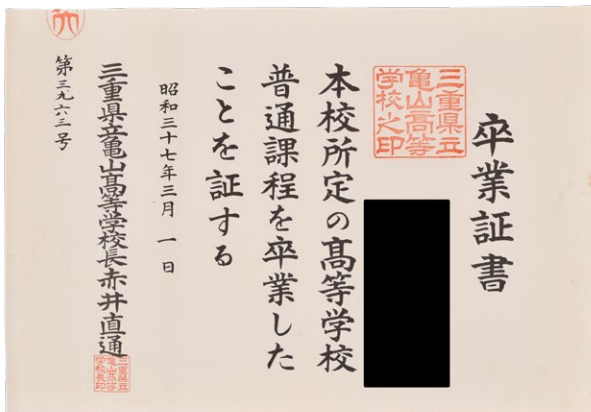 卒業証書
三重県立
亀山高等
学校之印
本校所定の髙等学校
普通課程を卒業した
ことを証する
昭和三十七年三月 一 日
三重県立亀山髙等学校長赤井直通
三重県立
亀山高等
学校長印
第三九六三号